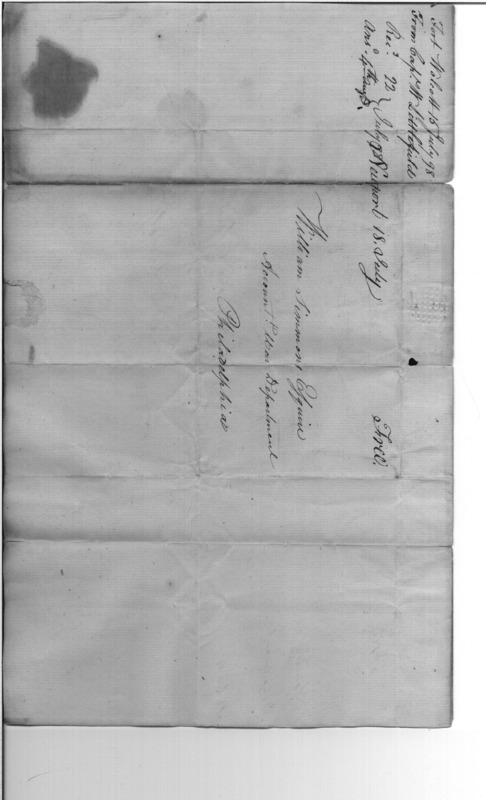 Fort Wolcott 15 July 98
From Capt. W Littlefield
Rec.d 22 } July 98
Ans.d
Newport 18. July
Free.
William Simmons Esquire
Accountt. War Department
Philadelphia